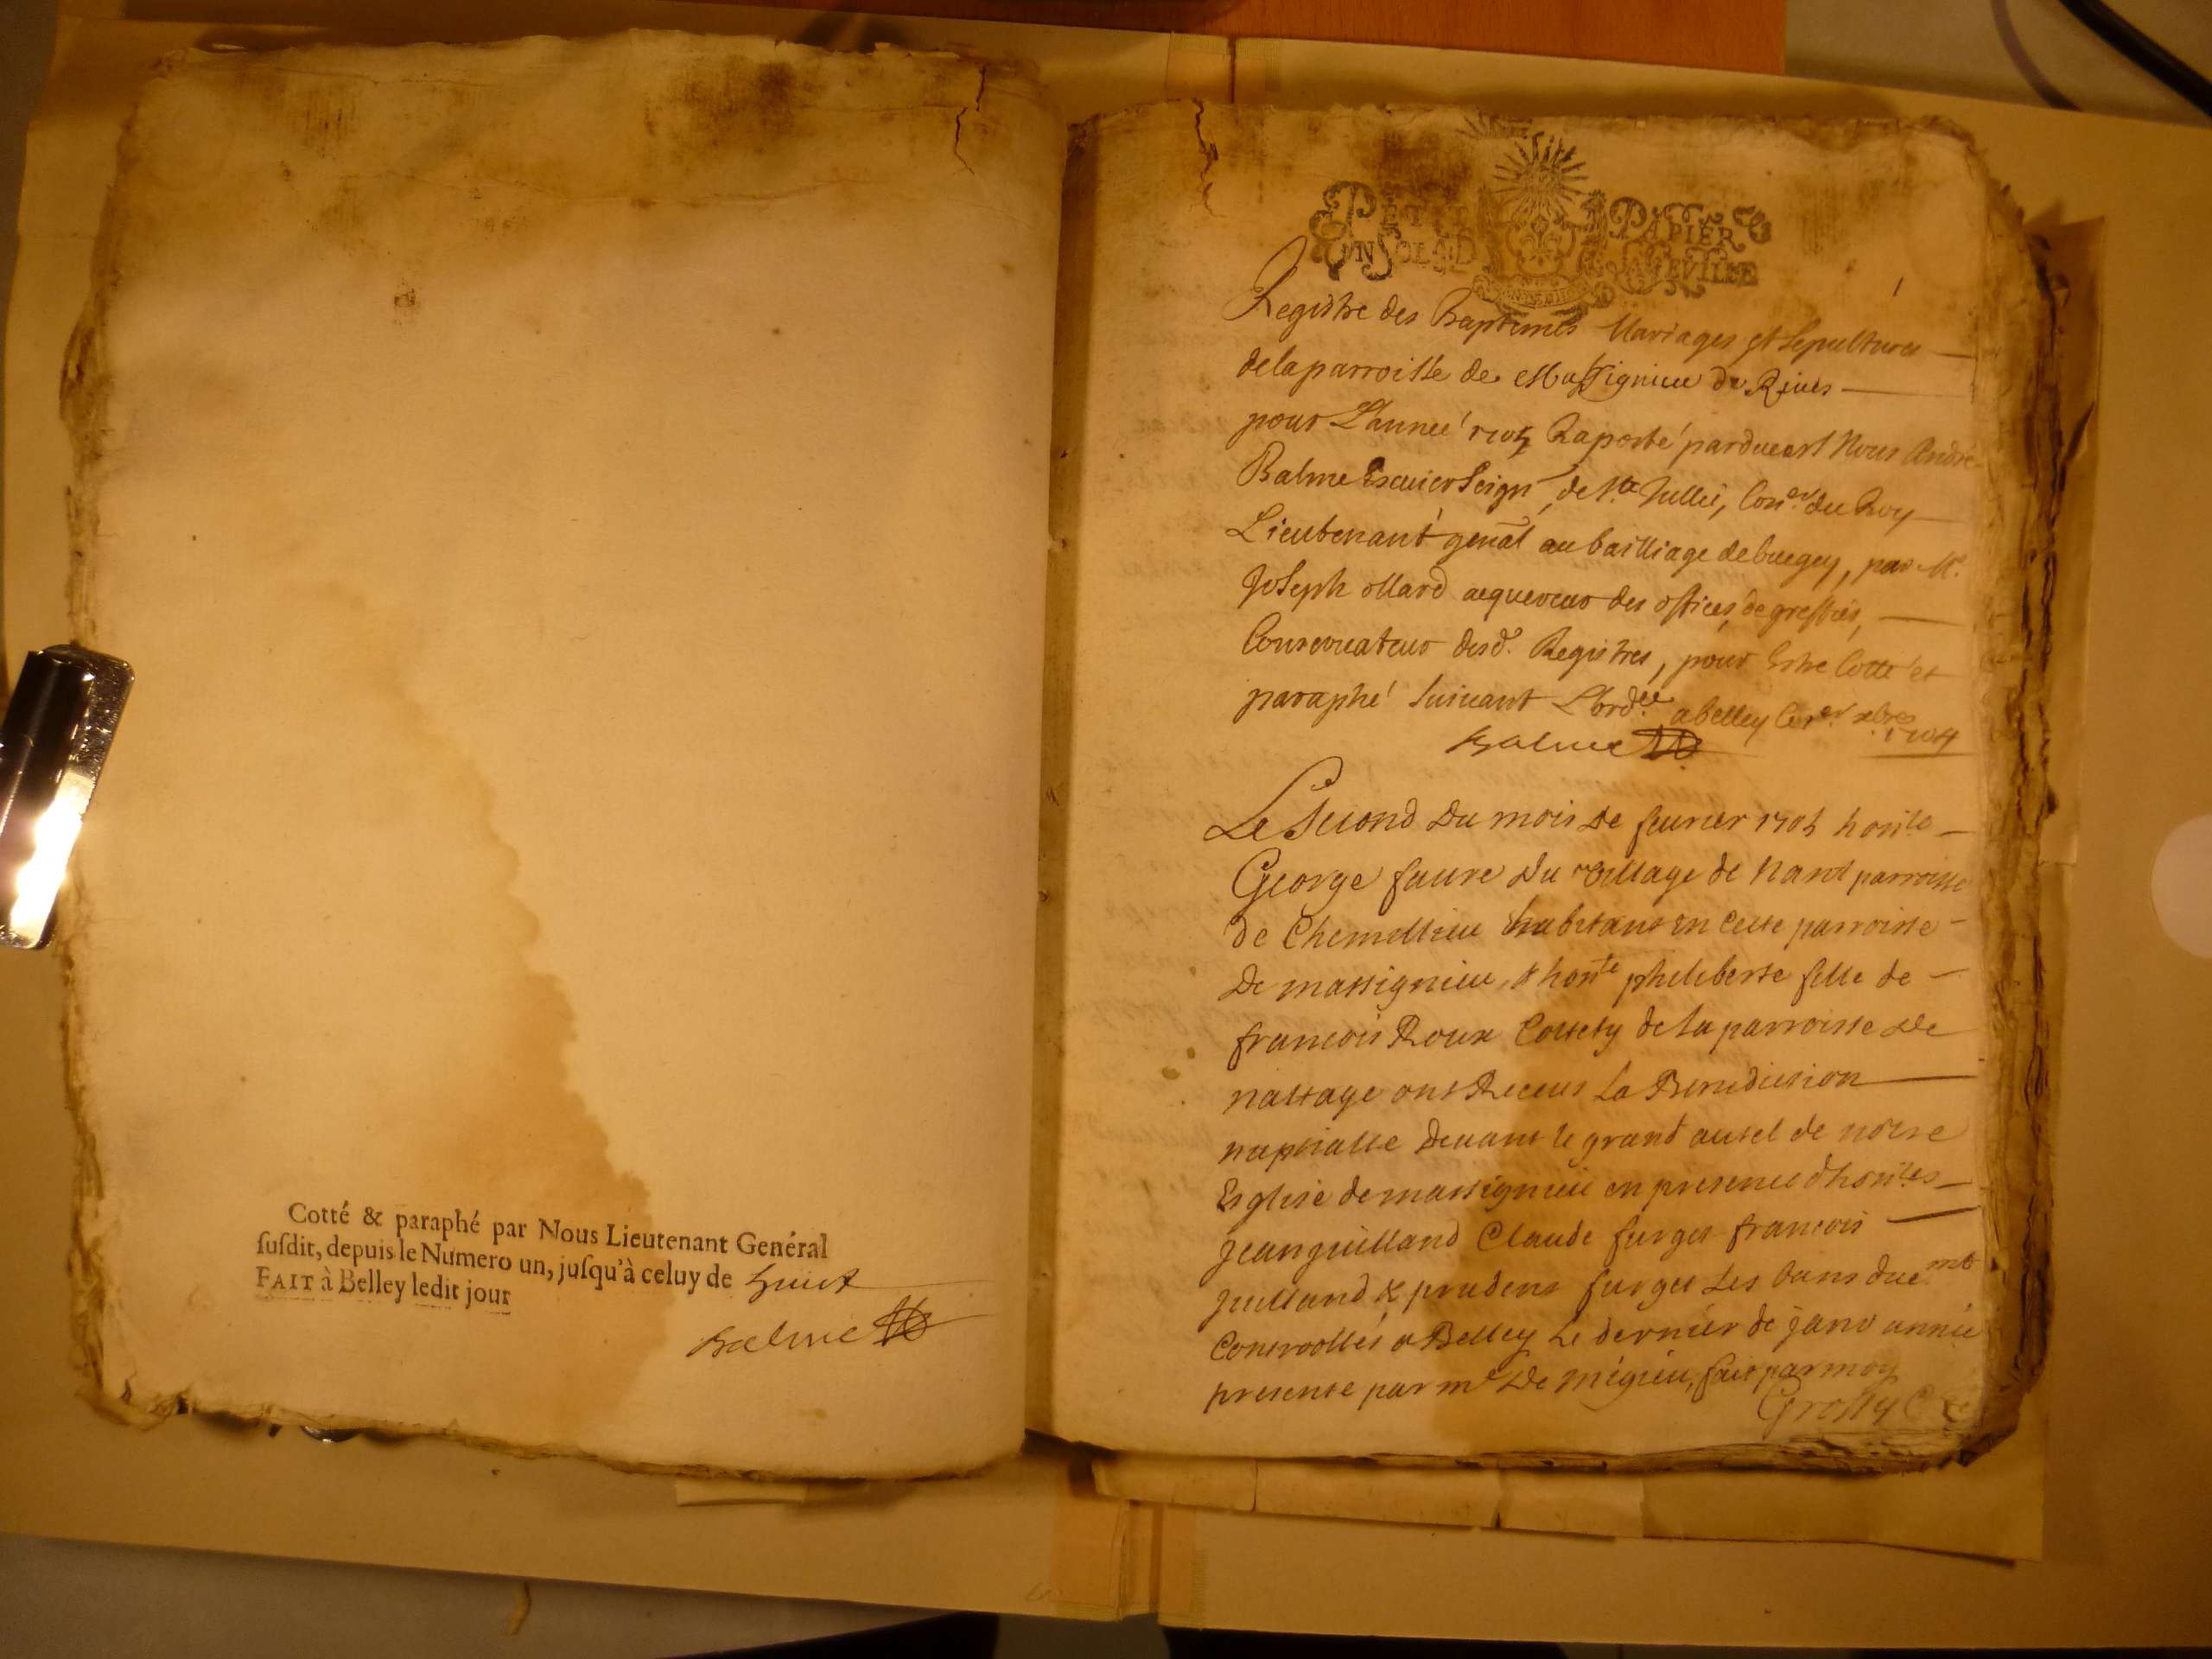 Cotté & paraphé par Nous Lieutenant Genéral
suſdit, depuis le Numero un, juſqu'à celuy de huict
FAIT à Belley ledit jour
Balme
PETIT PAPIER
EN SOL AD
1
Registre des Baptemes Mariages et Sepultures
delaparroisse de Massignieu de Rives
pour L'année 1705 Raporté pardevant Nous André
Balme Escuier Seigr de Ste Jullie, Conser du Roy
Lieutenant genal au bailliage debugey, par Me
Joseph Mard aquereur des offices de greffier,
Conservateur desd. Registres, pour Estre Cotté et
paraphé suivant L'ordce abelley 1704
Balme
Le second du mois de fevrier 1705 honte
George faure du village de Nant parroisse
de Chemillieu habitant en cette parroisse
De massignieu, & honte philiberte fille de
francois Roux Collety de la parroisse de
nattage ont Receus la Benediction
nuptialle devant le grand autel de notre
Esglise de massignieu en presence dhontes
Jean guilland Claude furget francois
guilland & prudent furget Les bans duemt
Controollés a Belley Le dernier de janv année
presente par mr De migieu, fait par moy
Grossy C